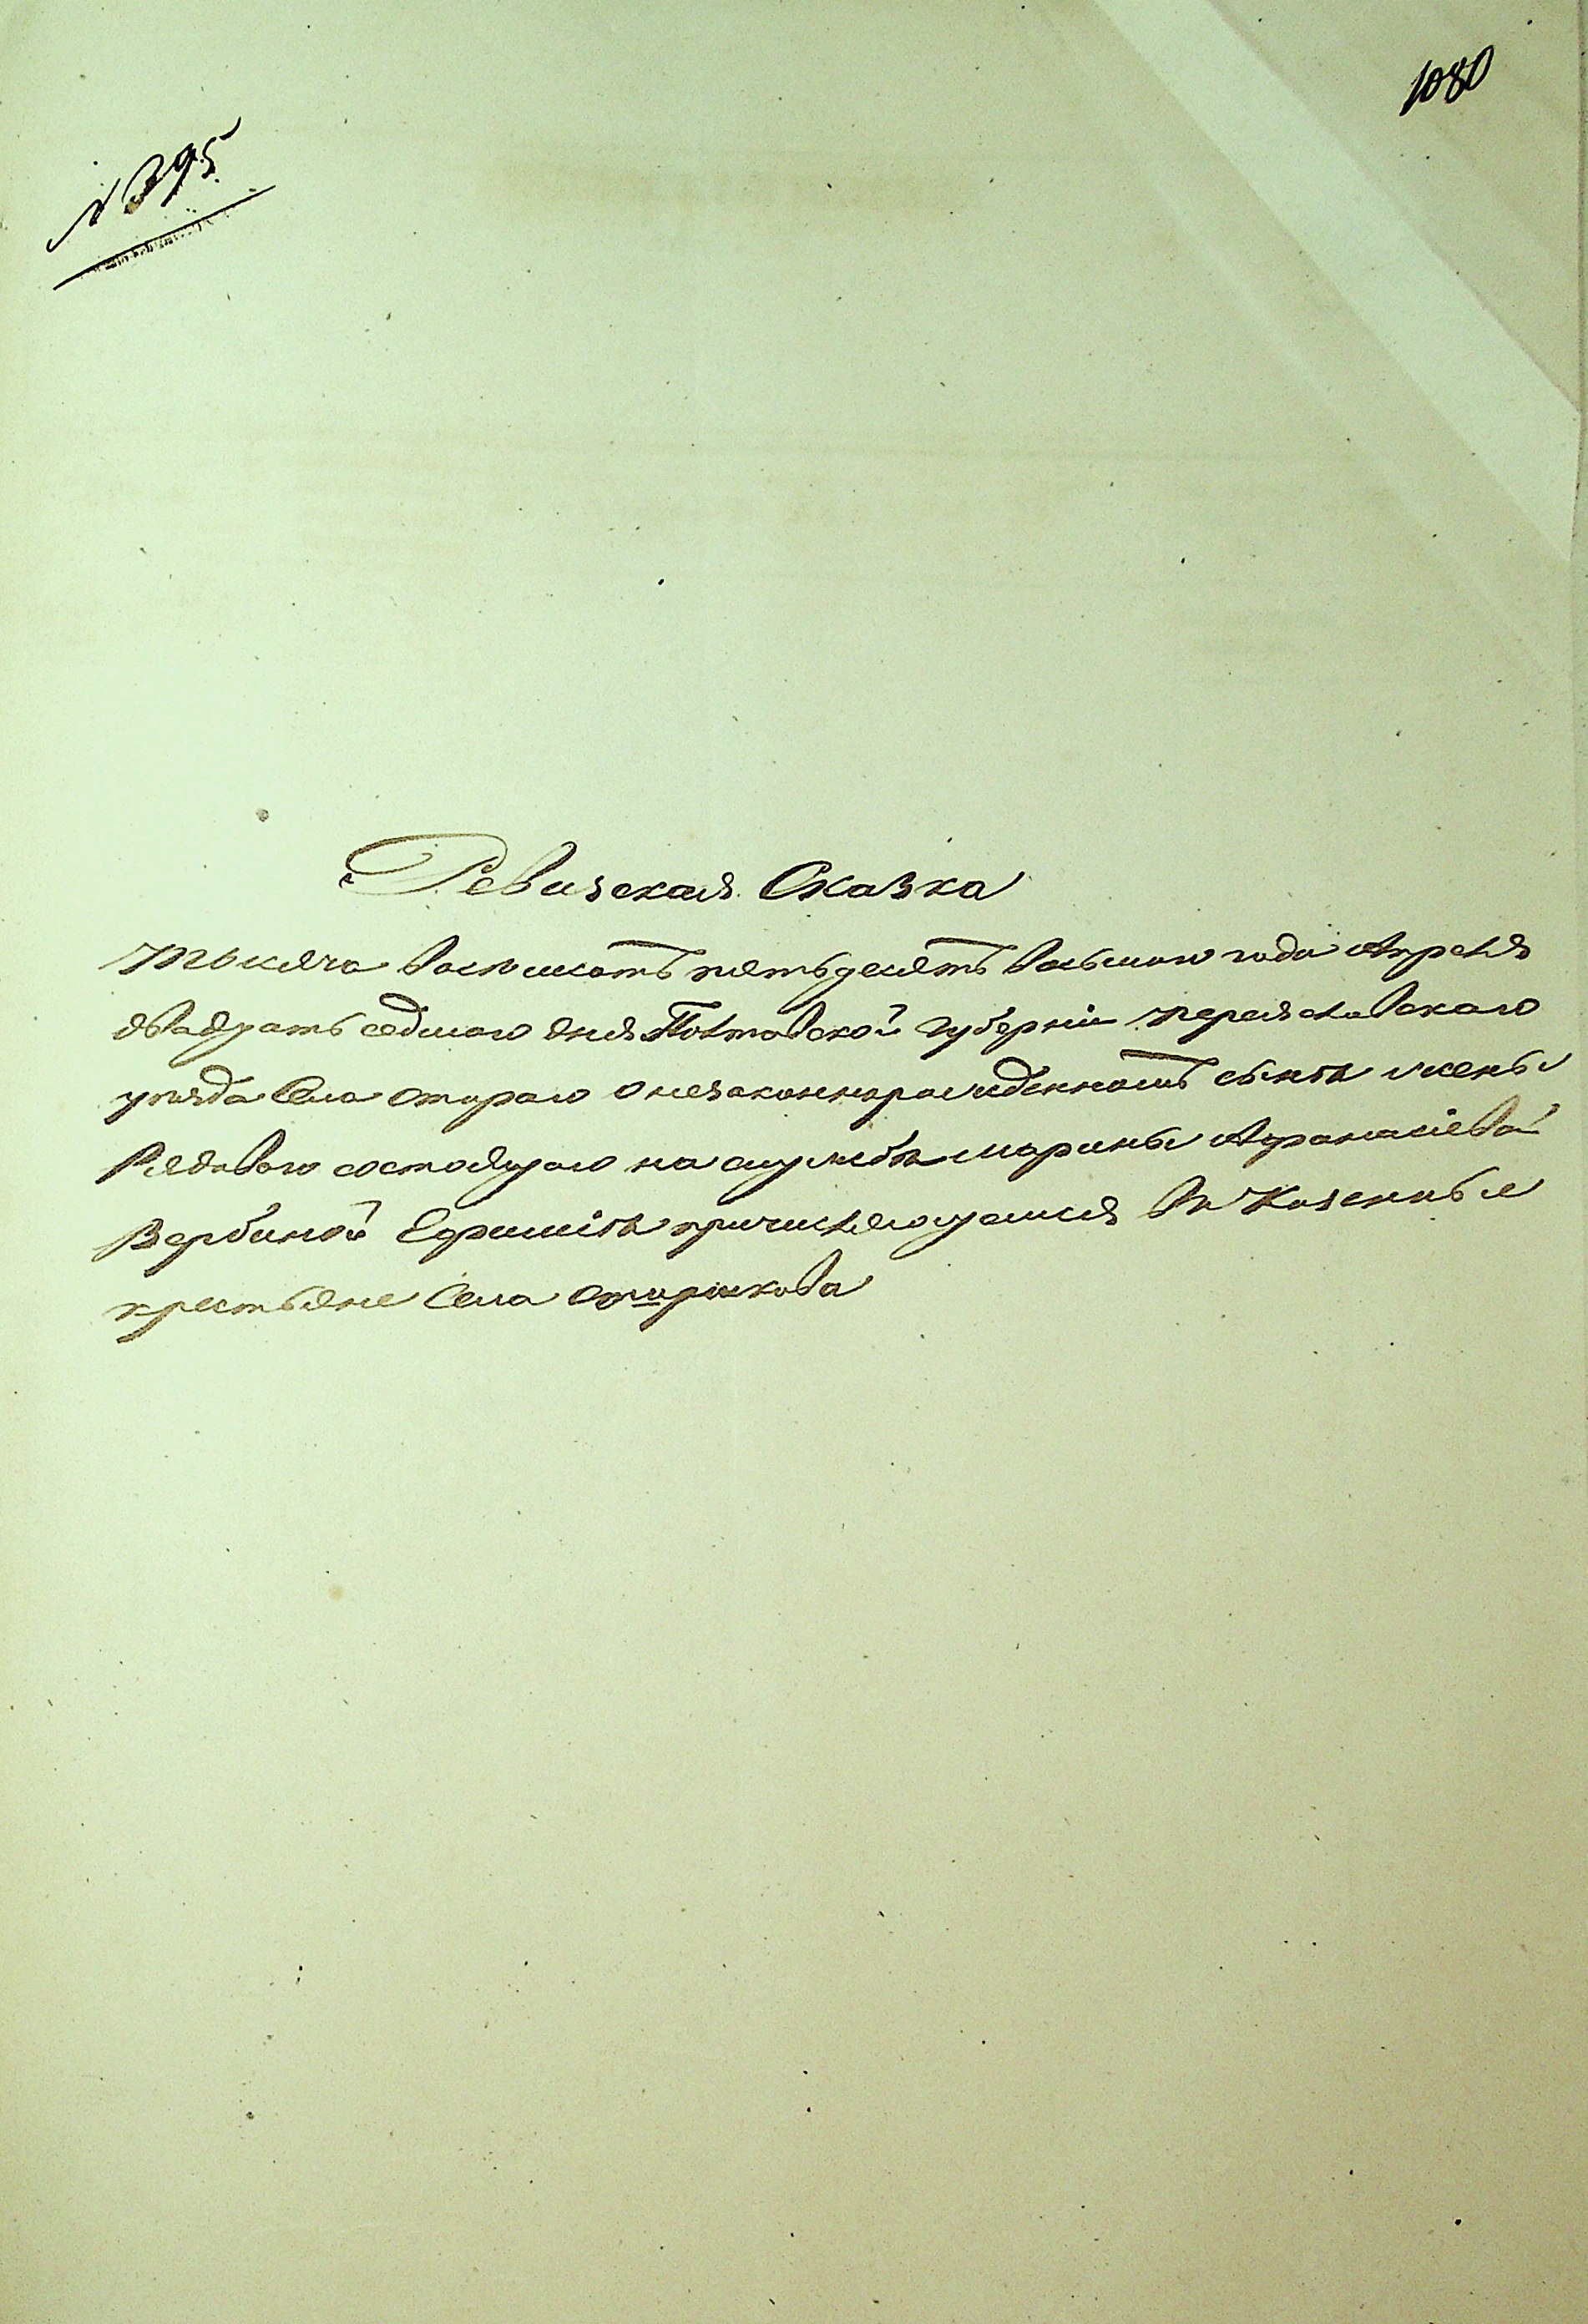 1080
№ 395
Ревизская Сказка
Тысяча восемсотъ пятьдесятъ восьмого года Апреля
двадцать седмого дня Полтавской губерніи Переяславскаго
уѣзда Села старого о незаконнорожденномъ сынѣ жены
Рядового состоящаго на службѣ Марины Афанасіевой
Вербиной Ефимѣ причисляющемся въ Казенные
крестьяне Села